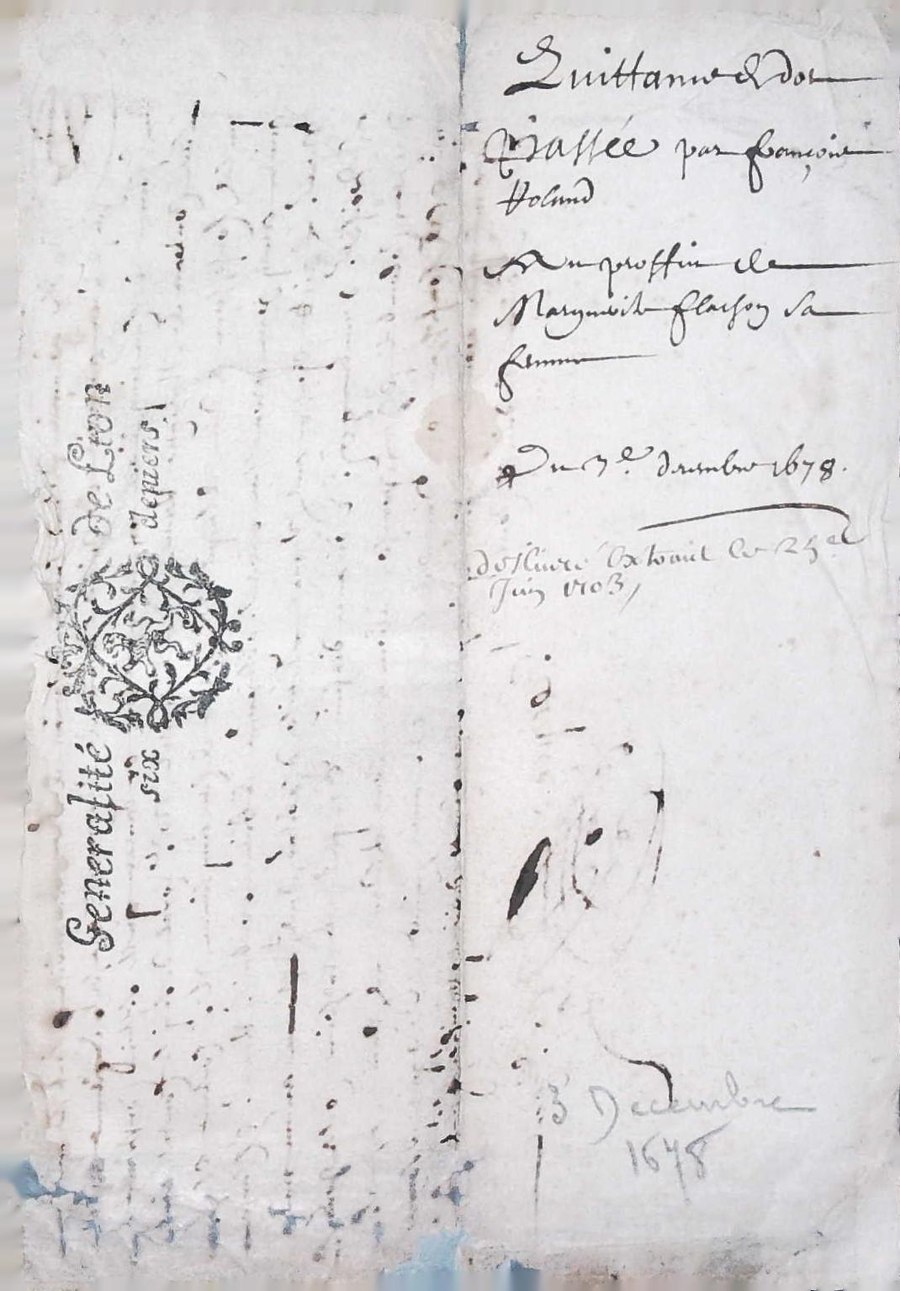 Quittance de dot
Passée par françois
Roland
Au proffit de
Marguerite flachon sa
femme
Du 3e. decembre 1678.
deslivré Extraict le 25e
Juin 1703
3 Decembre
1678
Generalité de Lion
six deniers